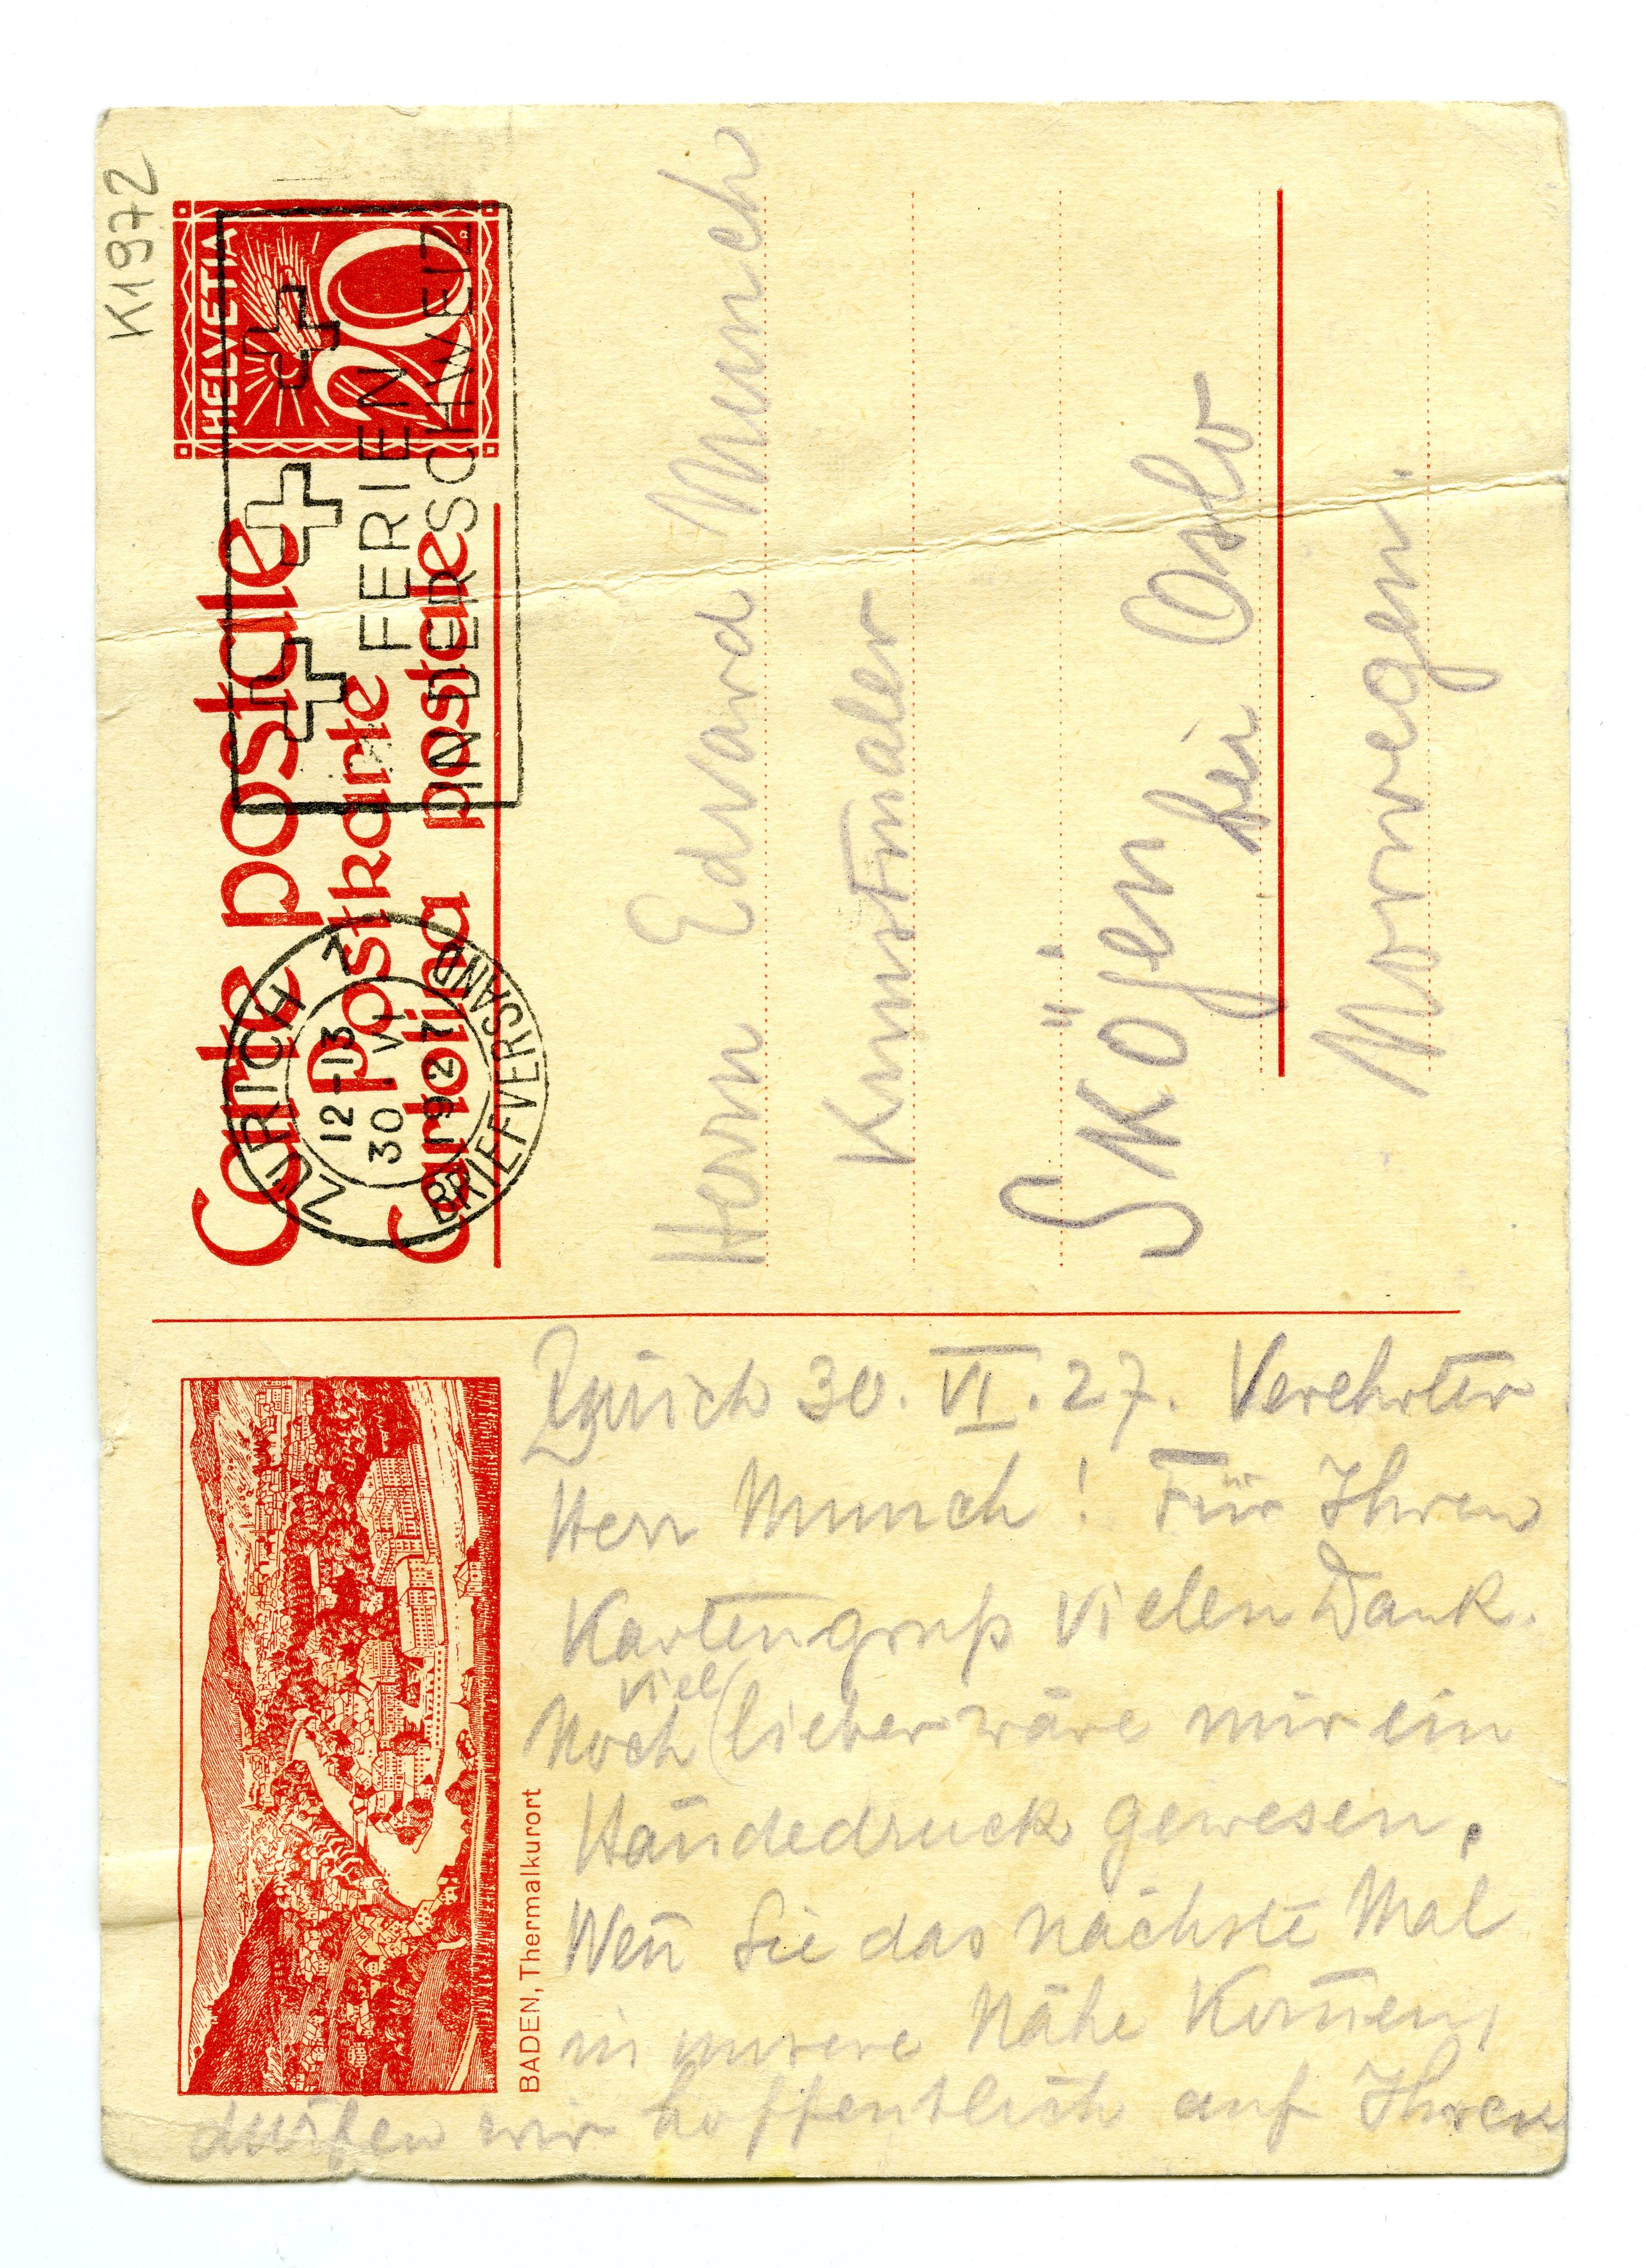 K1972
HELVETIA
20
Carte postale
Postkarte
Cartolina postale
FERIEN
IN DER SCHWEIZ
ZÜRICH 7
12-13
30.VI
1927
BRIEFVERSAND
Herrn Edvard Munch
Kunstmaler
Sköjen
bei Oslo
Norwegen.
BADEN, Thermalkurort
Zürich 30. VI. 27. Verehrter
Herr Munch! Für Ihren
Kartengruß vielen Dank.
viel
Noch lieber wäre mir ein
Händedruck gewesen.
Wen̄ Sie das nächste Mal
in unsere Nähe kom̄en,
dürfen wir hoffentlich auf Ihren